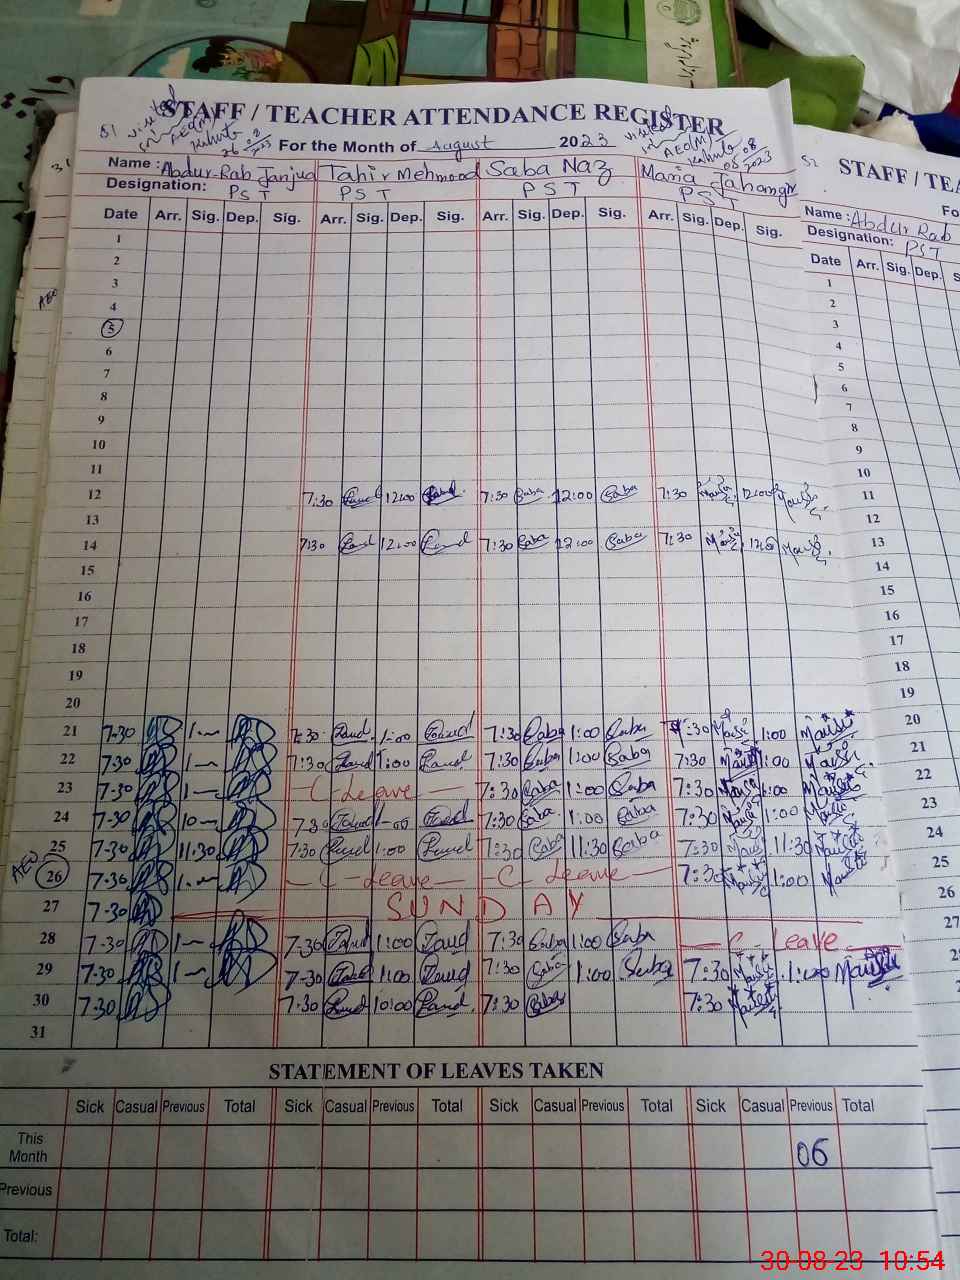 STAFF / TEACHER ATTENDANCE REGISTER
81 visited AEO(M) Kahuta 26 8 2023
For the Month of August 2023
visited AEO(M) Kahuta 08 08 2023
Name: Abdur-Rab Janjua Tahir Mehmood Saba Naz Maria Jahangir
Designation: PST PST PST PST
Date Arr. Sig. Dep. Sig. Arr. Sig. Dep. Sig. Arr. Sig. Dep. Sig. Arr. Sig. Dep. Sig.
1
2
3
4
5
6
7
8
9
10
11
12 7:30 12:00 7:30 Saba 12:00 Saba 7:30 12:00
13
14 7:30 12:00 7:30 Saba 12:00 Saba 7:30
15
16
17
18
19
20
21 7.30 1.— 7:30 1:00 7:30 Saba 1:00 Saba 7:30 1:00
22 7.30 1— 7:30 1:00 7:30 Saba 1:00 Saba 7:30 1:00
23 7.30 1— C-Leave 7:30 Saba 1:00 Saba 7:30 1:00
24 7.30 10— 7:30 1-00 7:30 Saba 1:00 Saba 7:30 1:00
25 7.30 11.30 7:30 1:00 7:30 Saba 11:30 Saba 7:30 11:30
AEO 26 7.30 1.— C-Leave C-Leave 7:30 1:00
27 7.30 SUNDAY
28 7.30 1— 7.30 1:00 7:30 Saba 1:00 Saba C-Leave
29 7.30 1— 7:30 1:00 7:30 Saba 1:00 Saba 7:30 1:00
30 7.30 7:30 10:00 7:30 Saba 7:30
31
STATEMENT OF LEAVES TAKEN
Sick Casual Previous Total Sick Casual Previous Total Sick Casual Previous Total Sick Casual Previous Total
This Month 06
Previous
Total:
82
STAFF / TEA
Fo
Name: Abdur Rab
Designation: PST
Date Arr. Sig. Dep. S
1
2
3
4
5
6
7
8
9
10
11
12
13
14
15
16
17
18
19
20
21
22
23
24
25
26
27
30-08-23 10:54